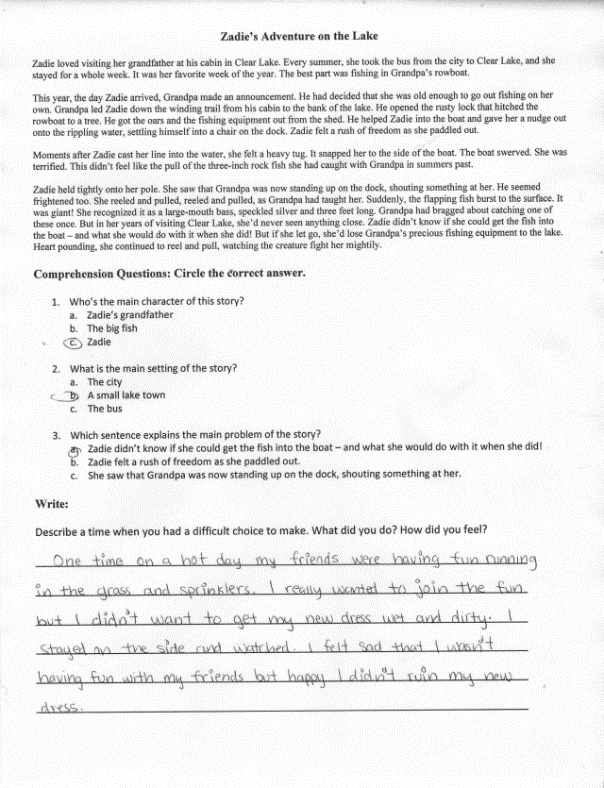 Zadie's Adventure on the Lake
Zadie loved visiting her grandfather at his cabin in Clear Lake. Every summer, she took the bus from the city to Clear Lake, and she
stayed for a whole week. It was her favorite week of the year. The best part was fishing in Grandpa's rowboat.
This year, the day Zadie arrived, Grandpa made an announcement. He had decided that she was old enough to go out fishing on her
own. Grandpa led Zadie down the winding trail from his cabin to the bank of the lake. He opened the rusty lock that hitched the
rowboat to a tree. He got the oars and the fishing equipment out from the shed. He helped Zadie into the boat and gave her a nudge out
onto the rippling water, settling himself into a chair on the dock. Zadie felt a rush of freedom as she paddled out.
Moments after Zadie cast her line into the water, she felt a heavy tug. It snapped her to the side of the boat. The boat swerved. She was
terrified. This didn't feel like the pull of the three-inch rock fish she had caught with Grandpa in summers past.
Zadie held tightly onto her pole. She saw that Grandpa was now standing up on the dock, shouting something at her. He seemed
frightened too. She reeled and pulled, reeled and pulled, as Grandpa had taught her. Suddenly, the flapping fish burst to the surface. It
was giant! She recognized it as a large-mouth bass, speckled silver and three feet long. Grandpa had bragged about catching one of
these once. But in her years of visiting Clear Lake, she'd never seen anything close. Zadie didn't know if she could get the fish into
the boat – and what she would do with it when she did! But if she let go, she'd lose Grandpa's precious fishing equipment to the lake.
Heart pounding, she continued to reel and pull, watching the creature fight her mightily.
Comprehension Questions: Circle the correct answer.
1. Who's the main character of this story?
a. Zadie's grandfather
b. The big fish
c. Zadie
2. What is the main setting of the story?
a. The city
b. A small lake town
c. The bus
3. Which sentence explains the main problem of the story?
a. Zadie didn't know if she could get the fish into the boat – and what she would do with it when she did!
b. Zadie felt a rush of freedom as she paddled out.
c. She saw that Grandpa was now standing up on the dock, shouting something at her.
Write:
Describe a time when you had a difficult choice to make. What did you do? How did you feel?
One time on a hot day my friends were having fun running
in the grass and sprinklers. I really wanted to join the fun
but I didn't want to get my new dress wet and dirty. I
stayed on the side and watched. I felt sad that I wasn't
having fun with my friends but happy I didn't ruin my new
dress.